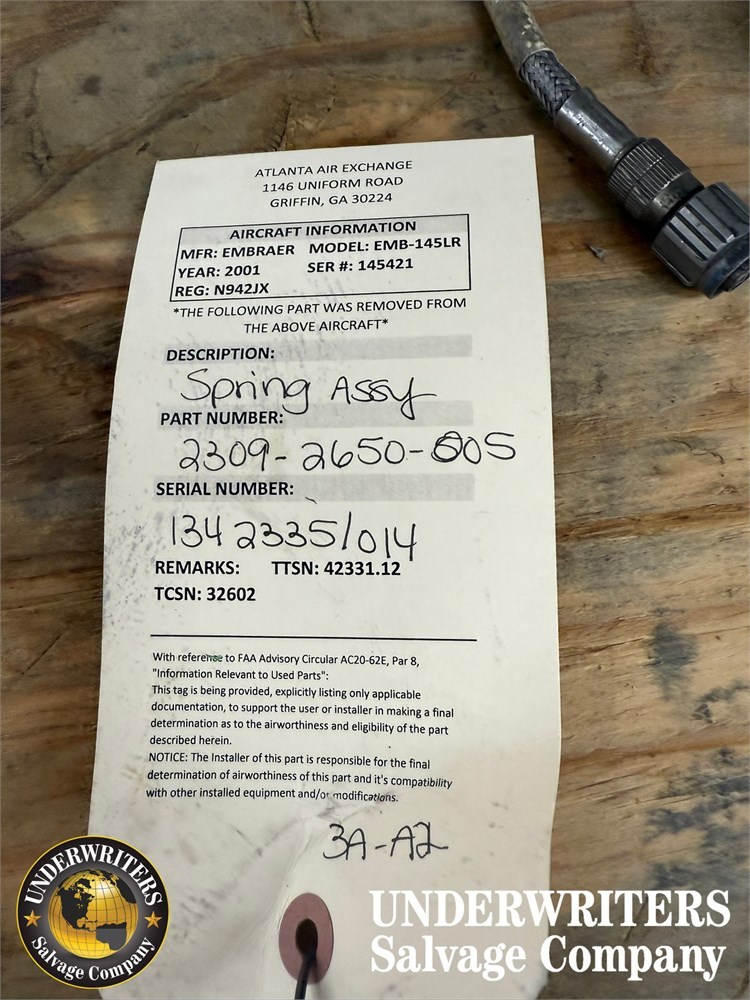 ATLANTA AIR EXCHANGE
1146 UNIFORM ROAD
GRIFFIN, GA 30224
AIRCRAFT INFORMATION
MFR: EMBRAER MODEL: EMB-145LR
YEAR: 2001 SER #: 145421
REG: N942JX
*THE FOLLOWING PART WAS REMOVED FROM
THE ABOVE AIRCRAFT*
DESCRIPTION:
Spring Assy
PART NUMBER:
2309-2650-005
SERIAL NUMBER:
1342335/014
REMARKS: TTSN: 42331.12
TCSN: 32602
With reference to FAA Advisory Circular AC20-62E, Par 8,
"Information Relevant to Used Parts":
This tag is being provided, explicitly listing only applicable
documentation, to support the user or installer in making a final
determination as to the airworthiness and eligibility of the part
described herein.
NOTICE: The Installer of this part is responsible for the final
determination of airworthiness of this part and it's compatibility
with other installed equipment and/or modifications.
3A-A2
UNDERWRITERS
Salvage Company
UNDERWRITERS
Salvage Company